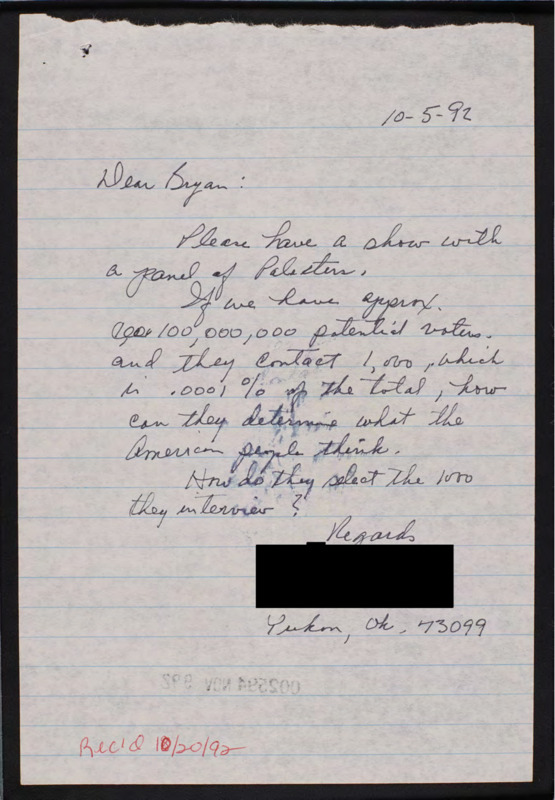 10-5-92
Dear Bryan:
Please have a show with
a panel of Palesters.
If we have approx.
100,000,000 potential voters.
and they contact 1,000, which
is .0001% of the total, how
can they determine what the
American people think.
How do they select the 1000
they interview?
Regards
Yukon, Ok. 73099
002594 NOV 9 92
Rec'd 10/20/92